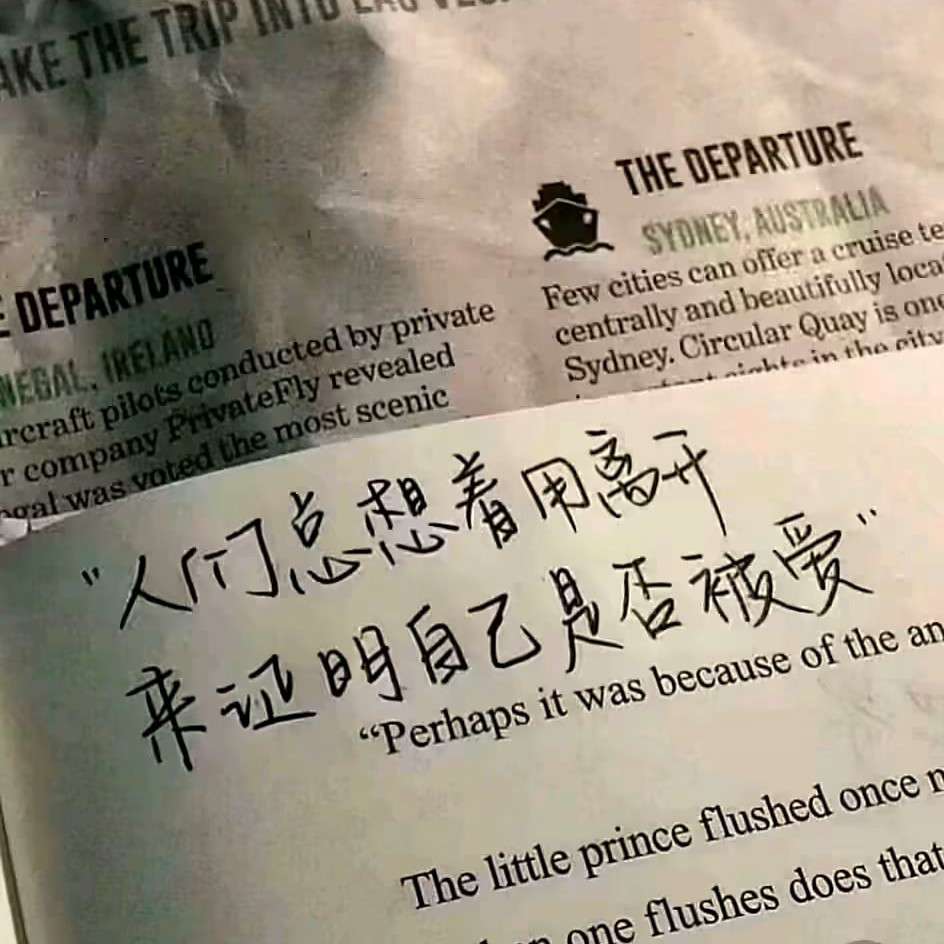 THE TRIP INTO
THE DEPARTURE
SYDNEY, AUSTRALIA
Few cities can offer a cruise
centrally and beautifully
Sydney. Circular Quay is
in the city
DEPARTURE
IRELAND
pilots conducted by private
company PrivateFly revealed
was voted the most scenic
"人们总想着用离开
来证明自己是否被爱"
“Perhaps it was because of the
The little prince flushed once
one flushes does that